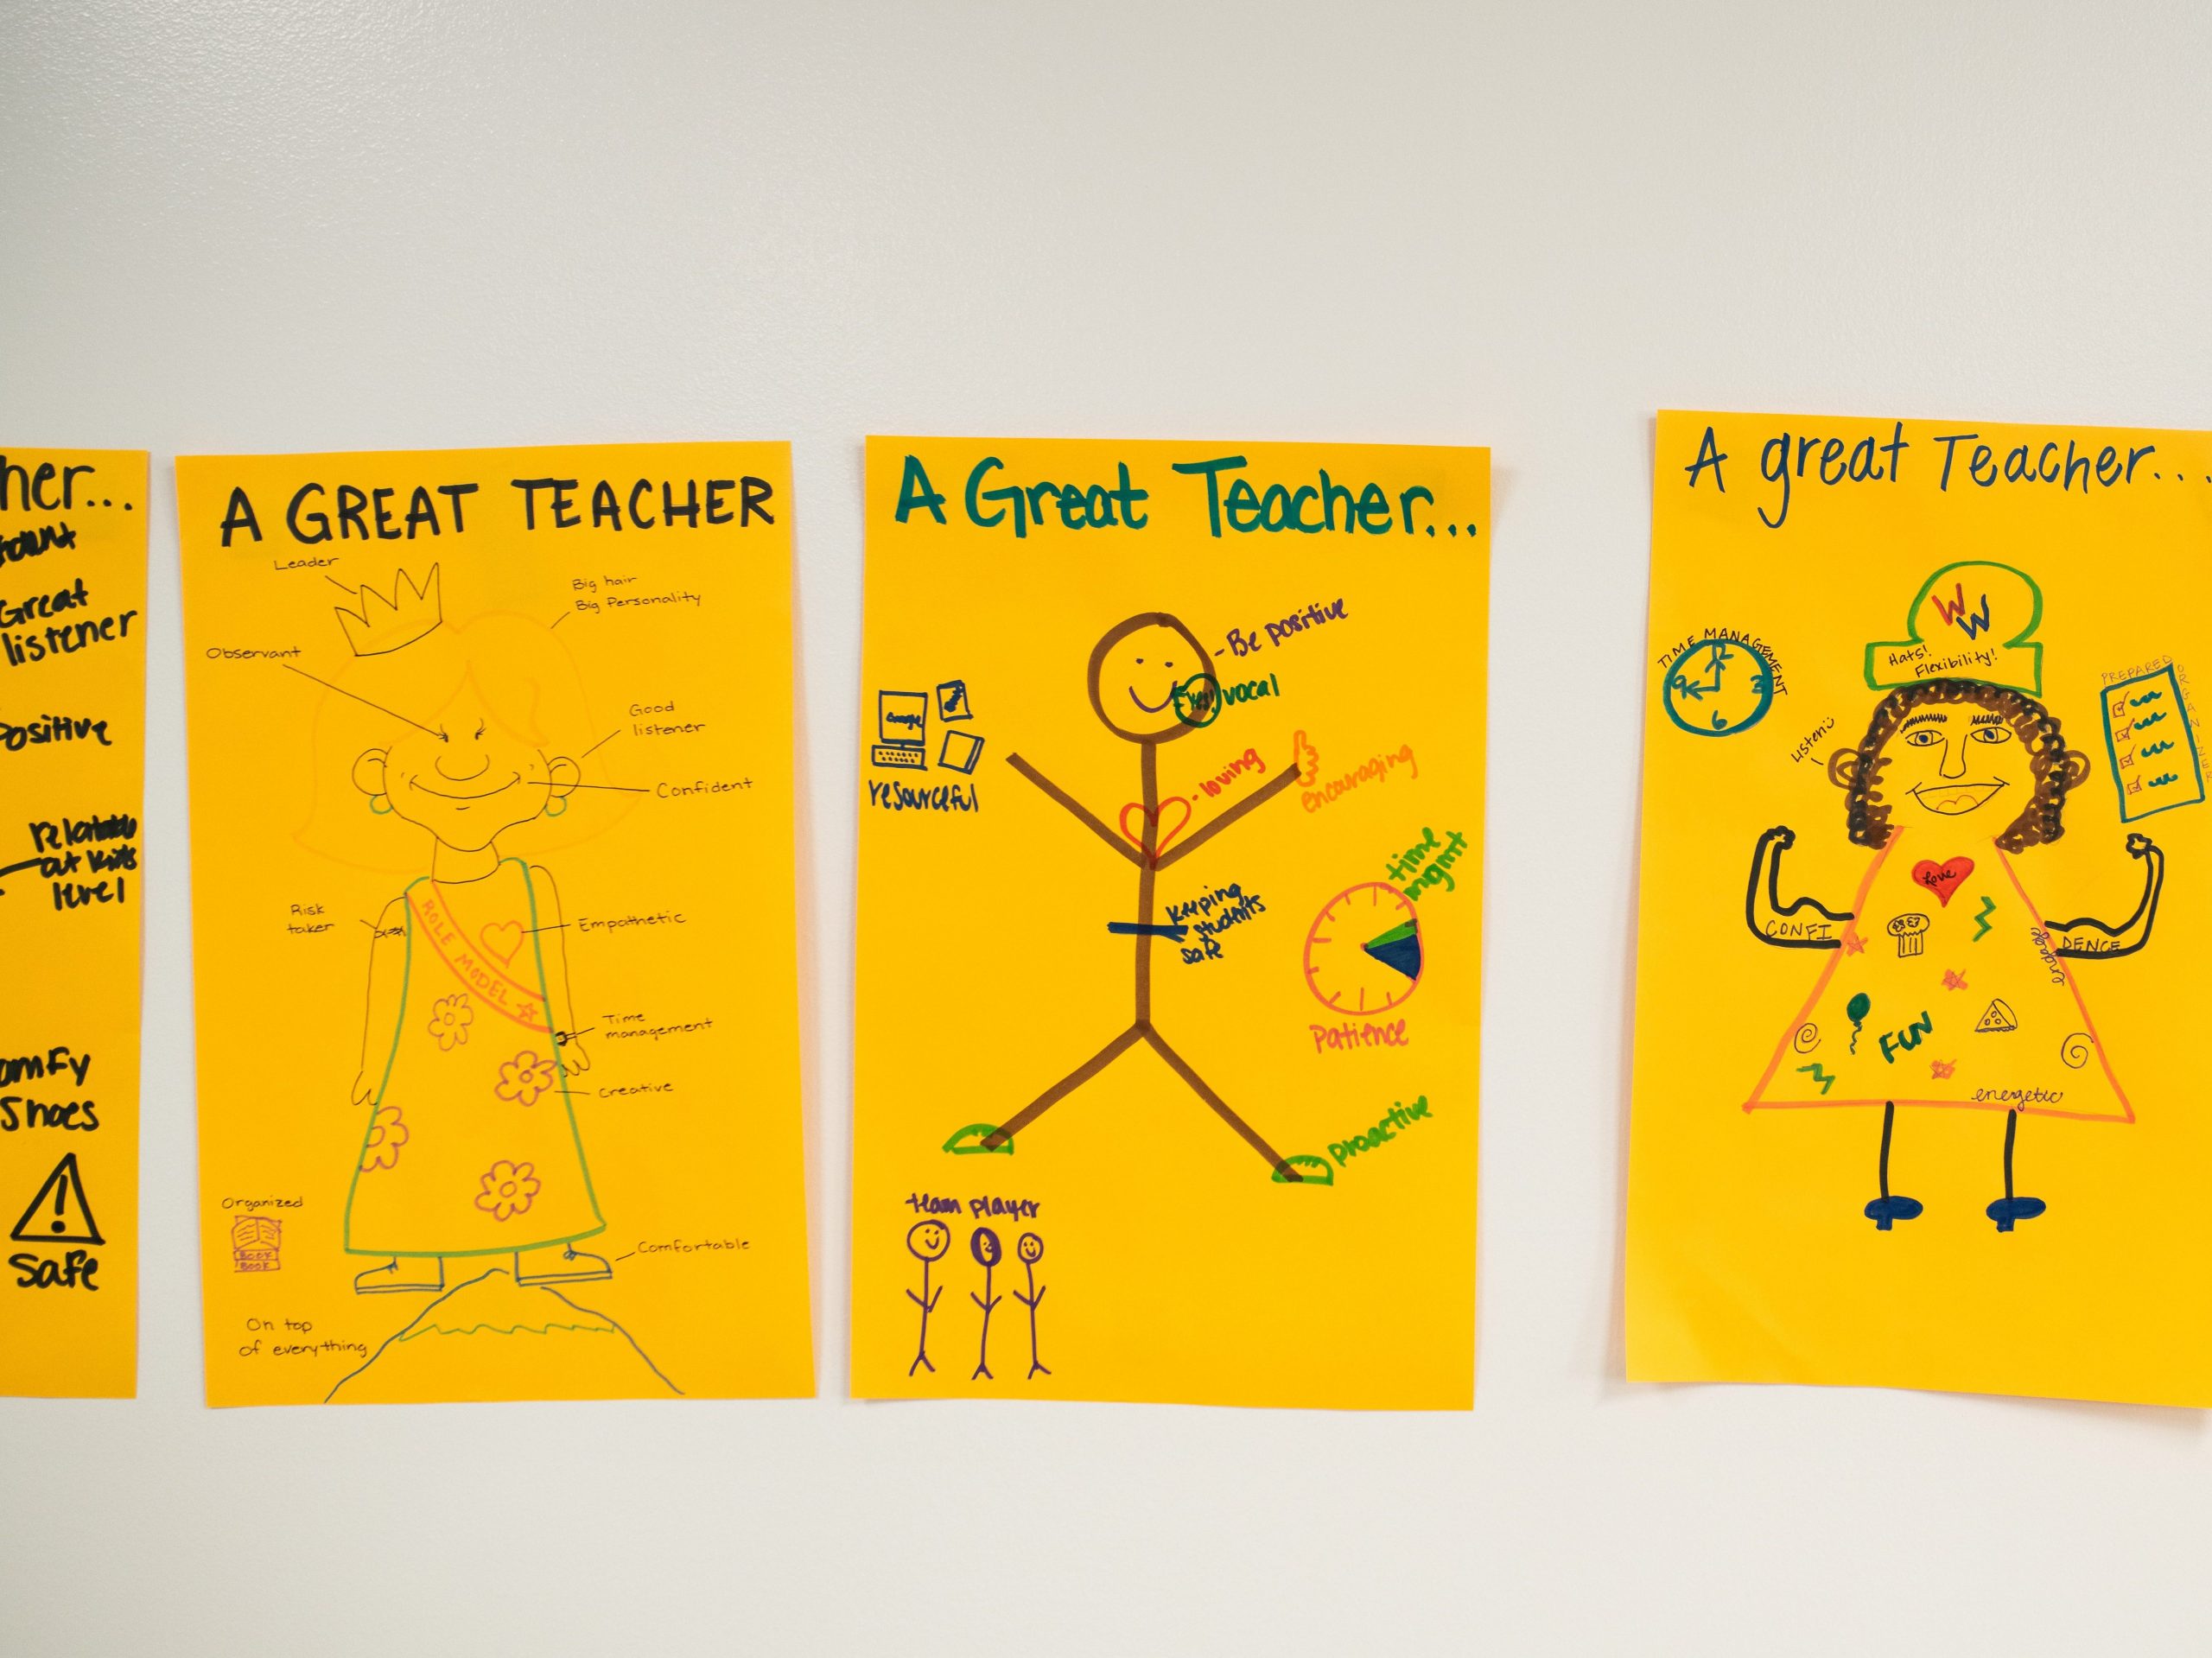 her...
Great
listener
Positive
relatable
at kids
level
omfy
Shoes
!
Safe
A GREAT TEACHER
Leader
Big hair
Big Personality
Observant
Good
listener
Confident
Risk
taker
ROLE MODEL
Empathetic
Time
management
Creative
Organized
BOOK
BOOK
Comfortable
On top
of everything
A Great Teacher...
- Be positive
vocal
Google
resourceful
- loving
encouraging
keeping
students
safe
time
mgmt
Patience
proactive
team player
A great Teacher...
W
W
Hats!
Flexibility!
TIME MANAGEMENT
12
3
6
9
PREPARED
ORGANIZED
Listen
CONFI
DENCE
Love
engage
FUN
energetic